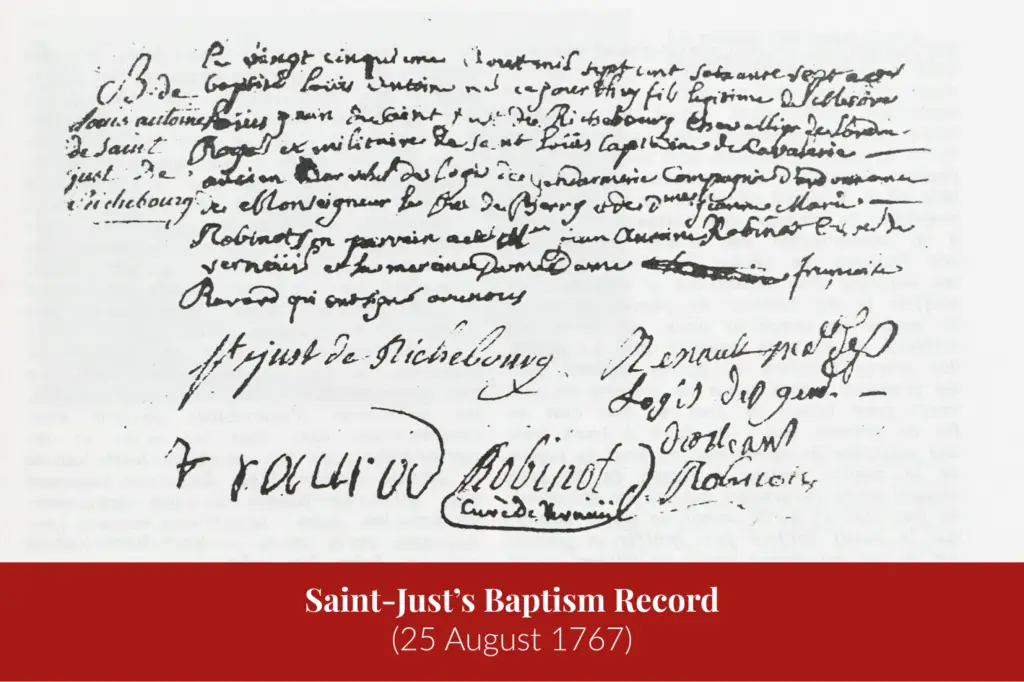 B. de
Louis antoine
de saint
just de
richebourg
Le vingt cinquieme d'out mil sept cent soixante sept a été
baptisé Loüis Antoine né ce jour fils legitime de Messire
Loüis de Saint just de Richebourg Chevallier de L'ordre
Royal et militaire de Saint Loüis Capitaine de Cavalerie
ancien Marechal de Logis de gendarmerie Compagnie d'ordonnance
de Monseigneur Le de Berry et de Jeanne Marie
Robinot son parrain a été Mtre jean Antoine Robinot Curé de
verneüil et la marraine Dame françoise
Ravard qui ont signé avec nous
St just de Richebourg
Renault
Logis des gend.
d'orleans
Robinot
Robinot
Curé de Verneüil
Saint-Just's Baptism Record
(25 August 1767)